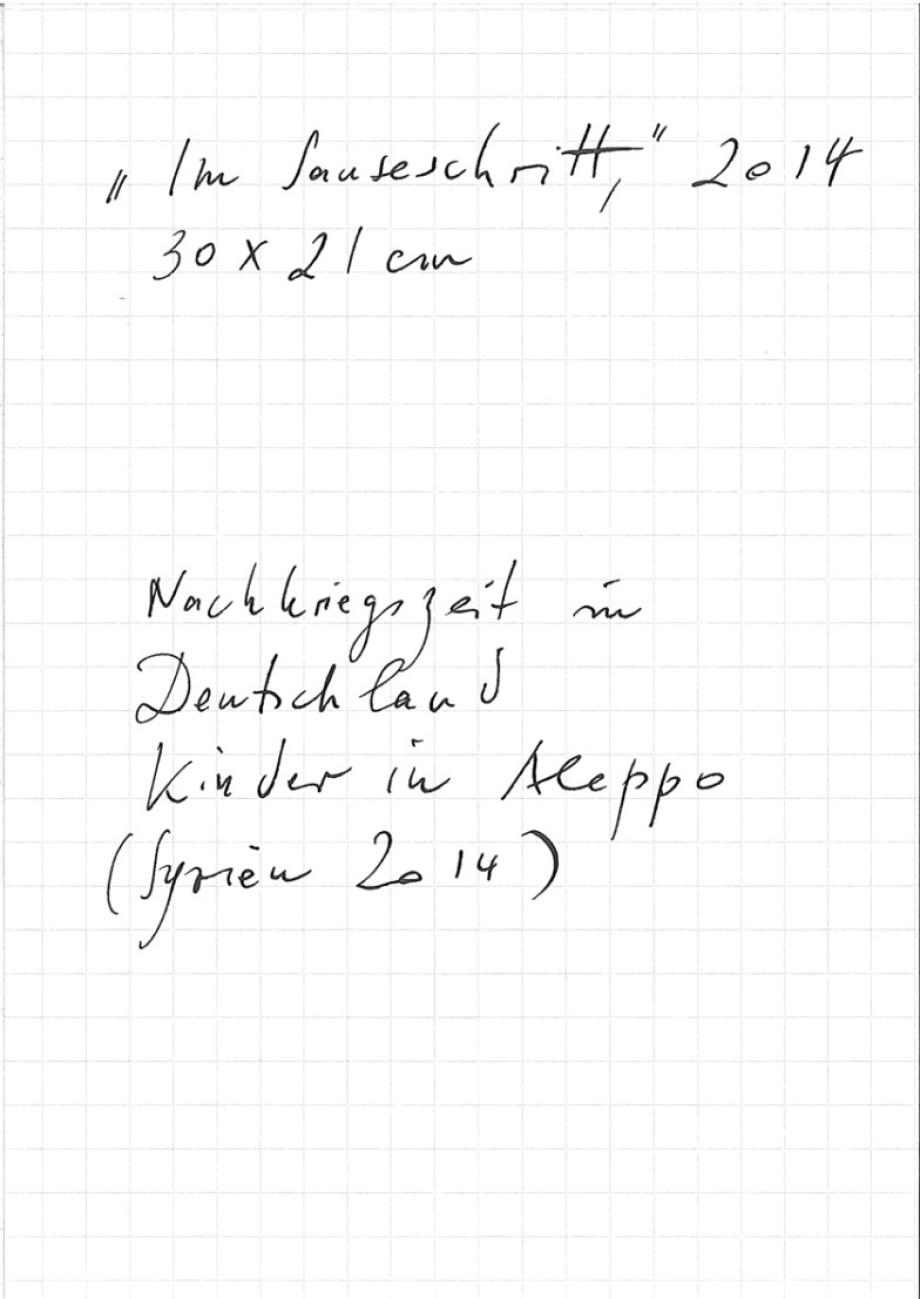 „Im Sauseschritt," 2014
30 x 21 cm
Nachkriegszeit in
Deutschland
Kinder in Aleppo
(Syrien 2014)